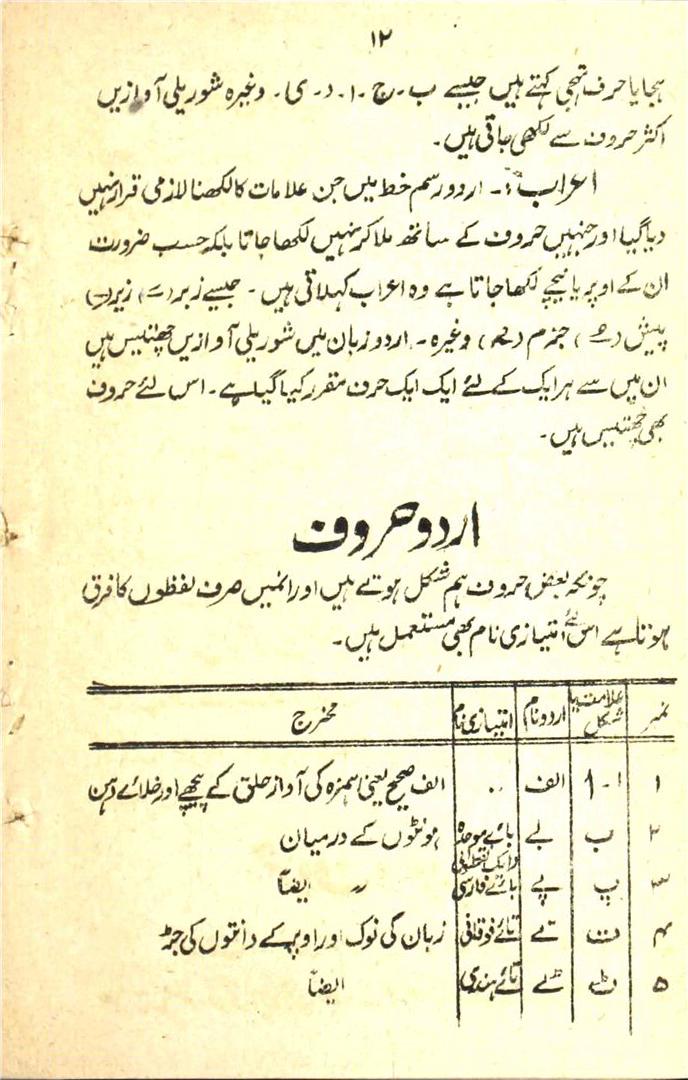 ۱۲
ہجایا حرف تہجی کہتے ہیں جیسے ب۔ ج۔ ا۔ د۔ ی۔ وغیرہ شوریلی آوازیں
اکثر حروف سے لکھی جاتی ہیں۔
اعراب:۔ اردو رسم خط میں جن علامات کا لکھنا لازمی قرار نہیں
دیا گیا اور جنہیں حروف کے ساتھ ملا کر نہیں لکھا جاتا بلکہ حسب ضرورت
ان کے اوپر یا نیچے لکھا جاتا ہے وہ اعراب کہلاتی ہیں۔ جیسے زبر (ـَ) زیر (ـِ)
پیش (ـُ) جزم (ـْ) وغیرہ۔ اردو زبان میں شوریلی آوازیں چھتیس ہیں
ان میں سے ہر ایک کے لئے ایک ایک حرف مقرر کیا گیا ہے۔ اس لئے حروف
بھی چھتیس ہیں۔
اردو حروف
چونکہ بعض حروف ہم شکل ہوتے ہیں اور انمیں صرف نقطوں کا فرق
ہوتا ہے اس لئے امتیازی نام بھی مستعمل ہیں۔
نمبر علامت یا شکل اردو نام امتیازی نام مخرج
۱ ا - أ الف .. الف صحیح یعنی ہمزہ کی آواز حلق کے پیچھے اور خلائے دہن
۲ ب بے بائے موحدہ (ایک نقطہ کی) ہونٹوں کے درمیان
۳ پ پے بائے فارسی 〃 ایضاً
۴ ت تے تائے فوقانی زبان کی نوک اور اوپر کے دانتوں کی جڑ
۵ ٹ ٹے تائے ہندی ایضاً